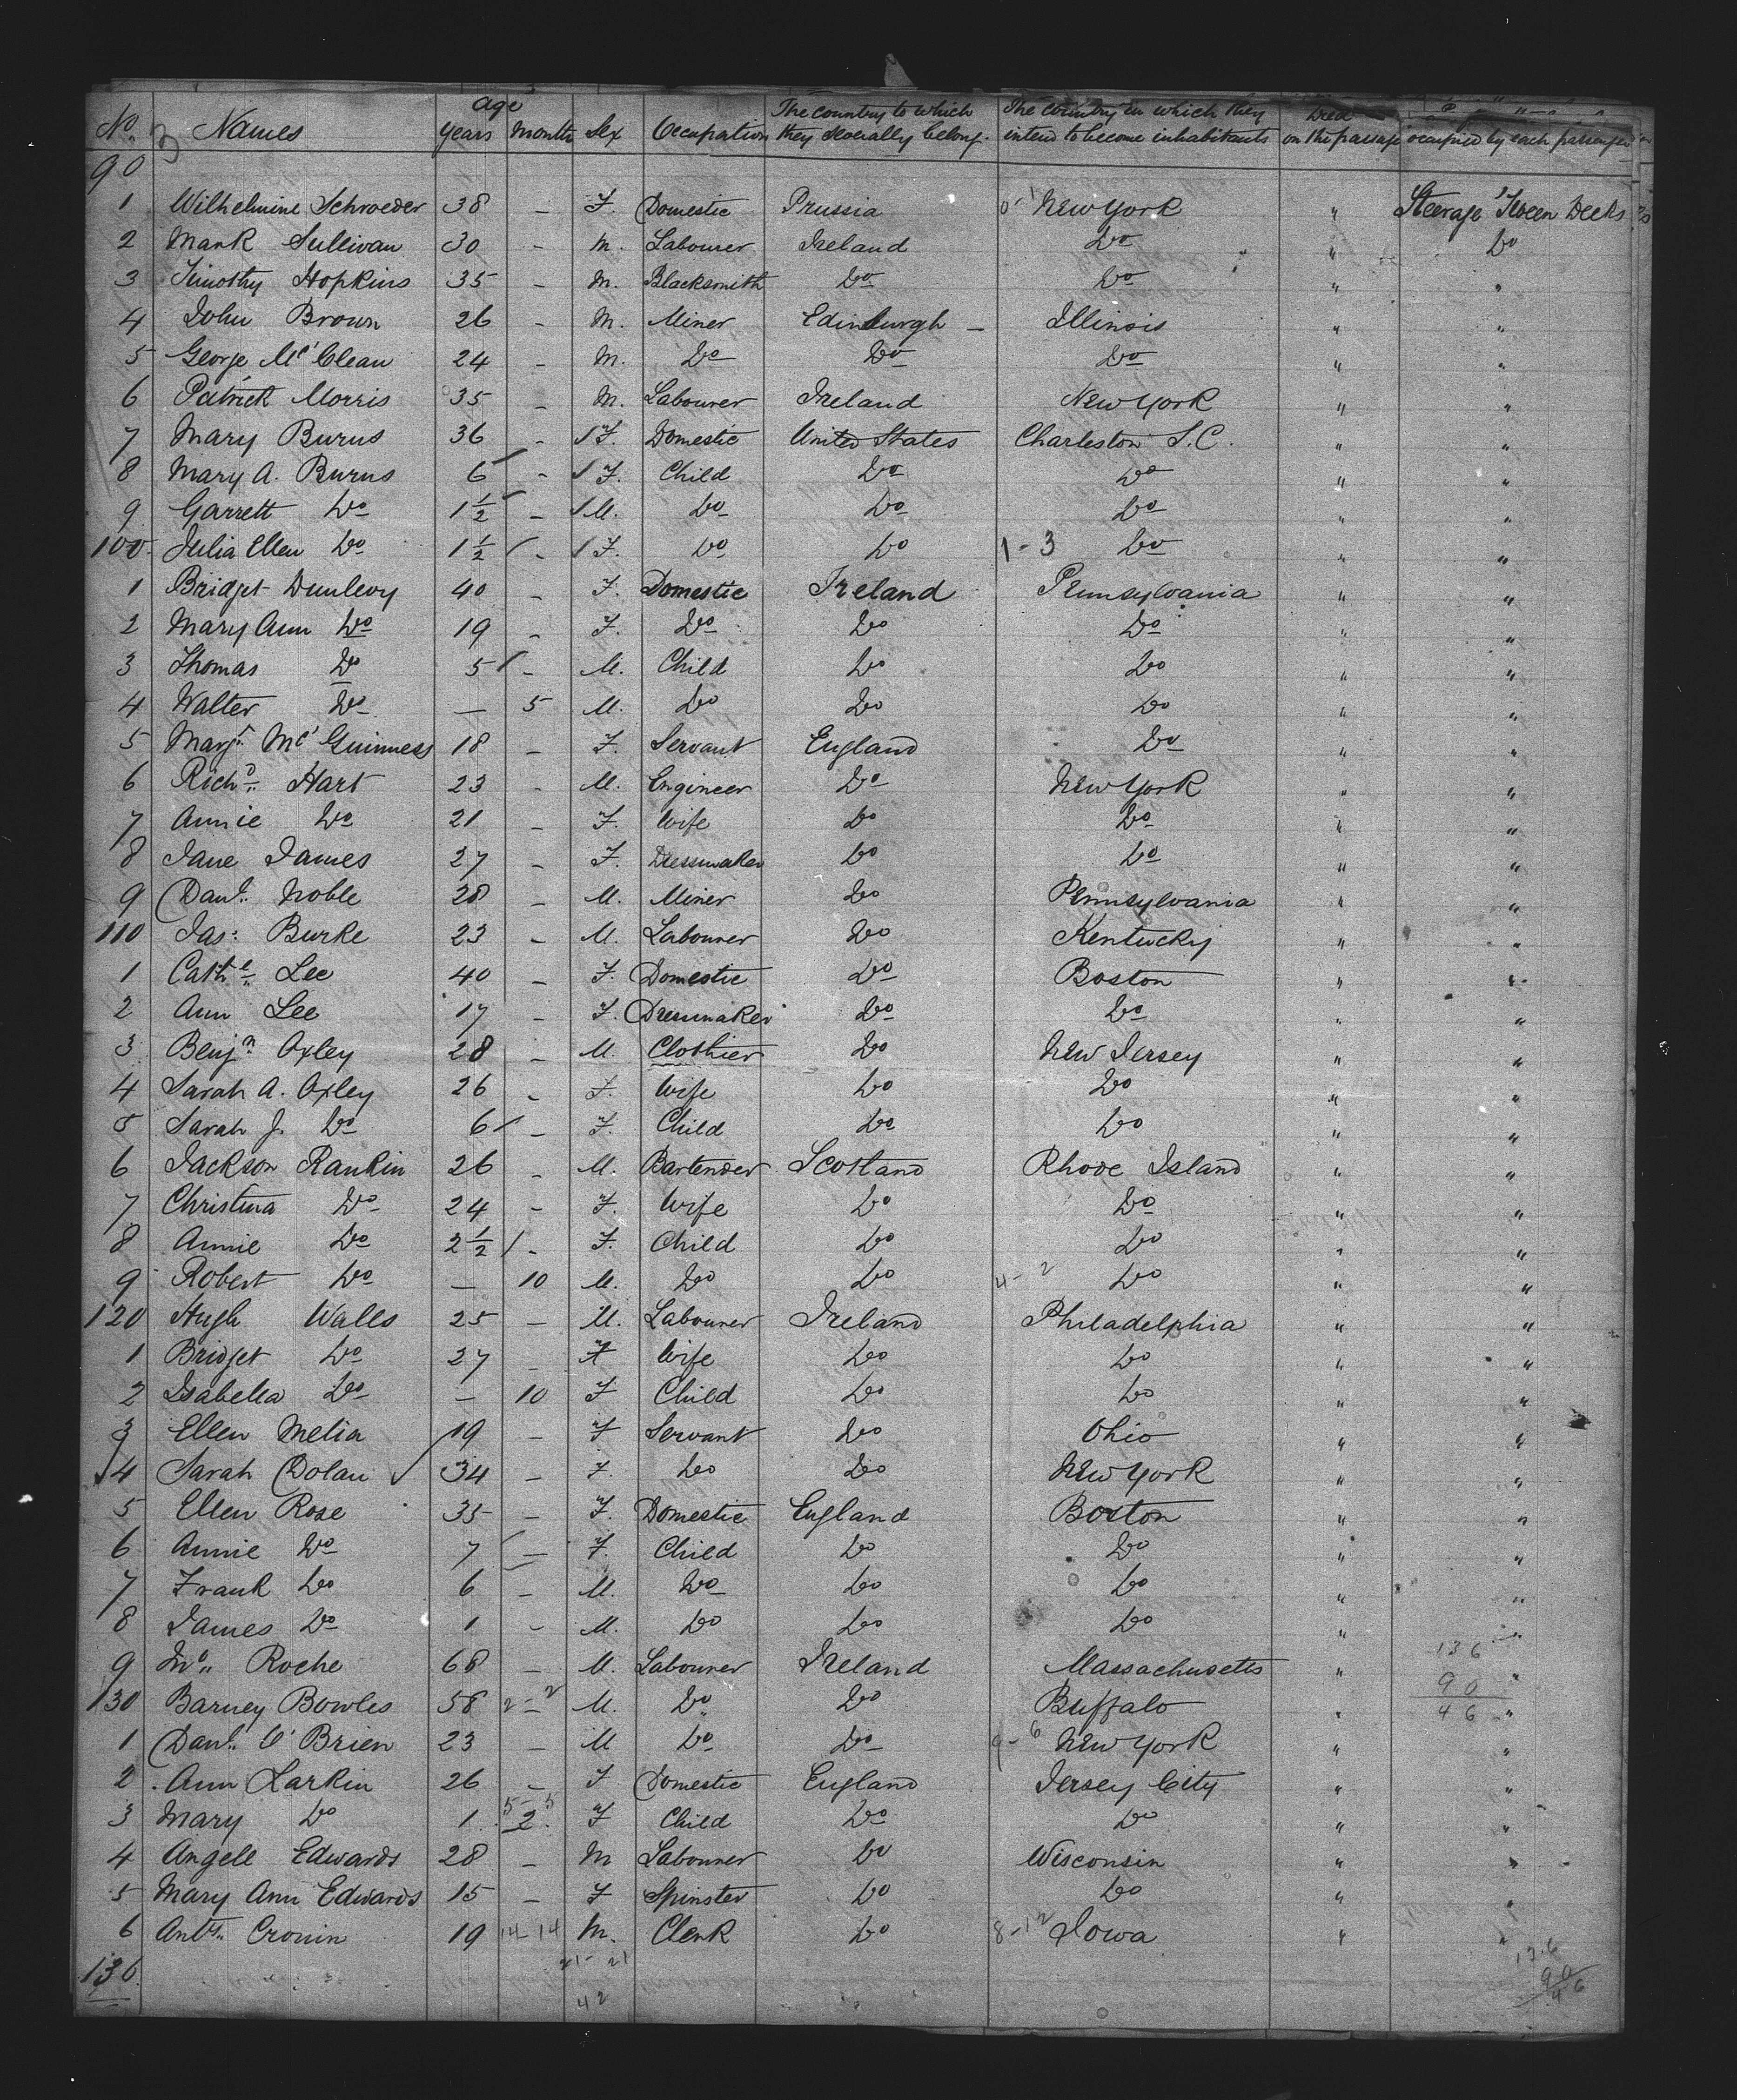 Age
No. Names Years Months Sex Occupation The Country to which they severally belong. The Country in which they intend to become inhabitants Died on the passage occupied by each passenger
90
1 Wilhelmine Schroeder 38 – F. Domestic Prussia New York " Steerage 'Tween Decks
2 Mark Sullivan 30 - M. Labourer Ireland Do " Do
3 Timothy Hopkins 35 - M. Blacksmith Do Do " "
4 John Brown 26 - M. Miner Edinburgh – Illinois " "
5 George McClean 24 - M. Do Do Do " "
6 Patrick Morris 35 - M. Labourer Ireland New York " "
7 Mary Burns 36 - F. Domestic United States Charleston S.C. " "
8 Mary A. Burns 6 - F. Child Do Do " "
9 Garrett Do 1½ - M. Do Do Do " "
100 Julia Ellen Do 1½ - F. Do Do 1-3 Do " "
1 Bridget Dunlevy 40 - F. Domestic Ireland Pennsylvania " "
2 Mary Ann Do 19 - F. Do Do Do " "
3 Thomas Do 5 - M. Child Do Do " "
4 Walter Do — 5 M. Do Do Do " "
5 Margt. McGuinness 18 - F. Servant England Do " "
6 Richd. Hart 23 - M. Engineer Do New York " "
7 Annie Do 21 - F. Wife Do Do " "
8 Jane James 27 - F. Dressmaker Do Do " "
9 Danl. Noble 28 - M. Miner Do Pennsylvania " "
110 Jas: Burke 23 - M. Labourer Do Kentucky " "
1 Cathe. Lee 40 - F. Domestic Do Boston " "
2 Ann Lee 17 - F. Dressmaker Do Do " "
3 Benjn. Oxley 28 - M. Clothier Do New Jersey " "
4 Sarah A. Oxley 26 - F. Wife Do Do " "
5 Sarah J. Do 6 - F. Child Do Do " "
6 Jackson Rankin 26 - M. Bartender Scotland Rhode Island " "
7 Christina Do 24 - F. Wife Do Do " "
8 Annie Do 2½ - F. Child Do Do " "
9 Robert Do — 10 M. Do Do 4-2 Do " "
120 Hugh Walls 25 - M. Labourer Ireland Philadelphia " "
1 Bridget Do 27 - F Wife Do Do " "
2 Isabella Do — 10 F Child Do Do " "
3 Ellen Melia 19 - F Servant Do Ohio " "
4 Sarah Dolan 34 - F. Do Do New York " "
5 Ellen Rose 35 - F. Domestic England Boston " "
6 Annie Do 7 - F. Child Do Do " "
7 Frank Do 6 - M. Do Do Do " "
8 James Do 1 - M. Do Do Do " "
9 Jno. Roche 68 - M. Labourer Ireland Massachusetts " 136 "
130 Barney Bowles 58 2-2 M. Do Do Buffalo " 90 46 "
1 Danl. O'Brien 23 - M Do Do 9-6 New York " "
2 Ann Larkin 26 - F Domestic England Jersey City " "
3 Mary Do 1 5-5 2 F Child Do Do " "
4 Angell Edwards 28 - M Labourer Do Wisconsin " "
5 Mary Ann Edwards 15 - F Spinster Do Do " "
6 Anty. Cronin 19 14-14 M. Clerk Do 8-12 Iowa " "
136 21-21 136
90
46
42